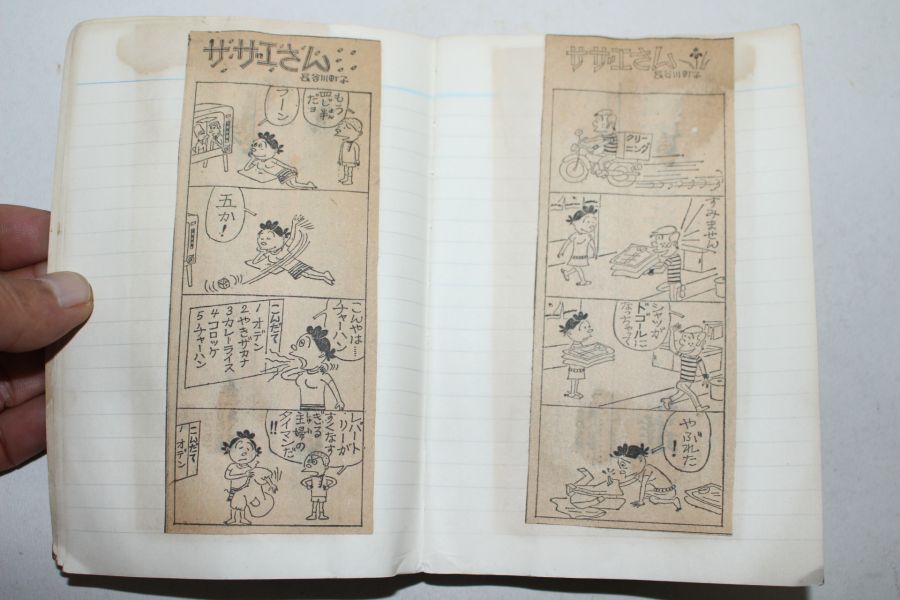 サザエさん
長谷川町子
もう
四じ半
だョ
うーン
五か!
こんやは…
チャーハン
こんだて
1 オデン
2 やきザカナ
3 カレーライス
4 コロッケ
5 チャーハン
レパート
リーが
すくなす
ぎる
主婦の
タイマンだ
!!
こんだて
1 オデン
サザエさん
長谷川町子
クリー
ニング
すみません
シャツが
ドゴールに
やぶれた
!